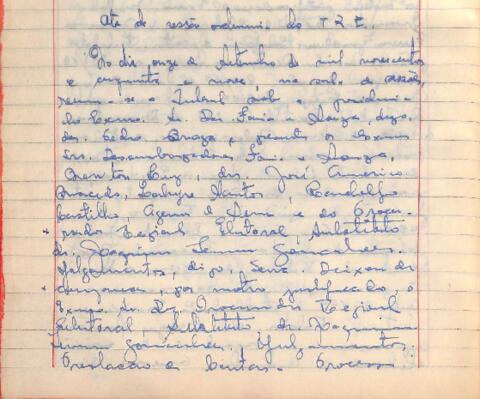 Ata de sessão ordinaria do T R E.
No dia onze de setembro de mil novecentos
e cinquenta e nove, na sala de sessões,
reuniu-se o Tribunal sob a presidencia
do Exmo. Sr. Des. Faria e Souza, digo,
des. Pedro Braga, presentes os Exmos
Srs. Desembargadores Faria e Souza,
Cruz, drs. José Americo
Macedo, Santos, Randolfo
Castilho, e Sena e do Procu-
rador Regional Eleitoral, Substituto
dr. Joaquim Gonçalves.
Julgamentos, digo, Sena. Deixou de
comparecer, por motivo justificado, o
Exmo. Sr. Dr. Procurador Regional
Eleitoral, Substituto dr. Joaquim
Gonçalves. Julgamentos.
Prestação de Contas - Processo